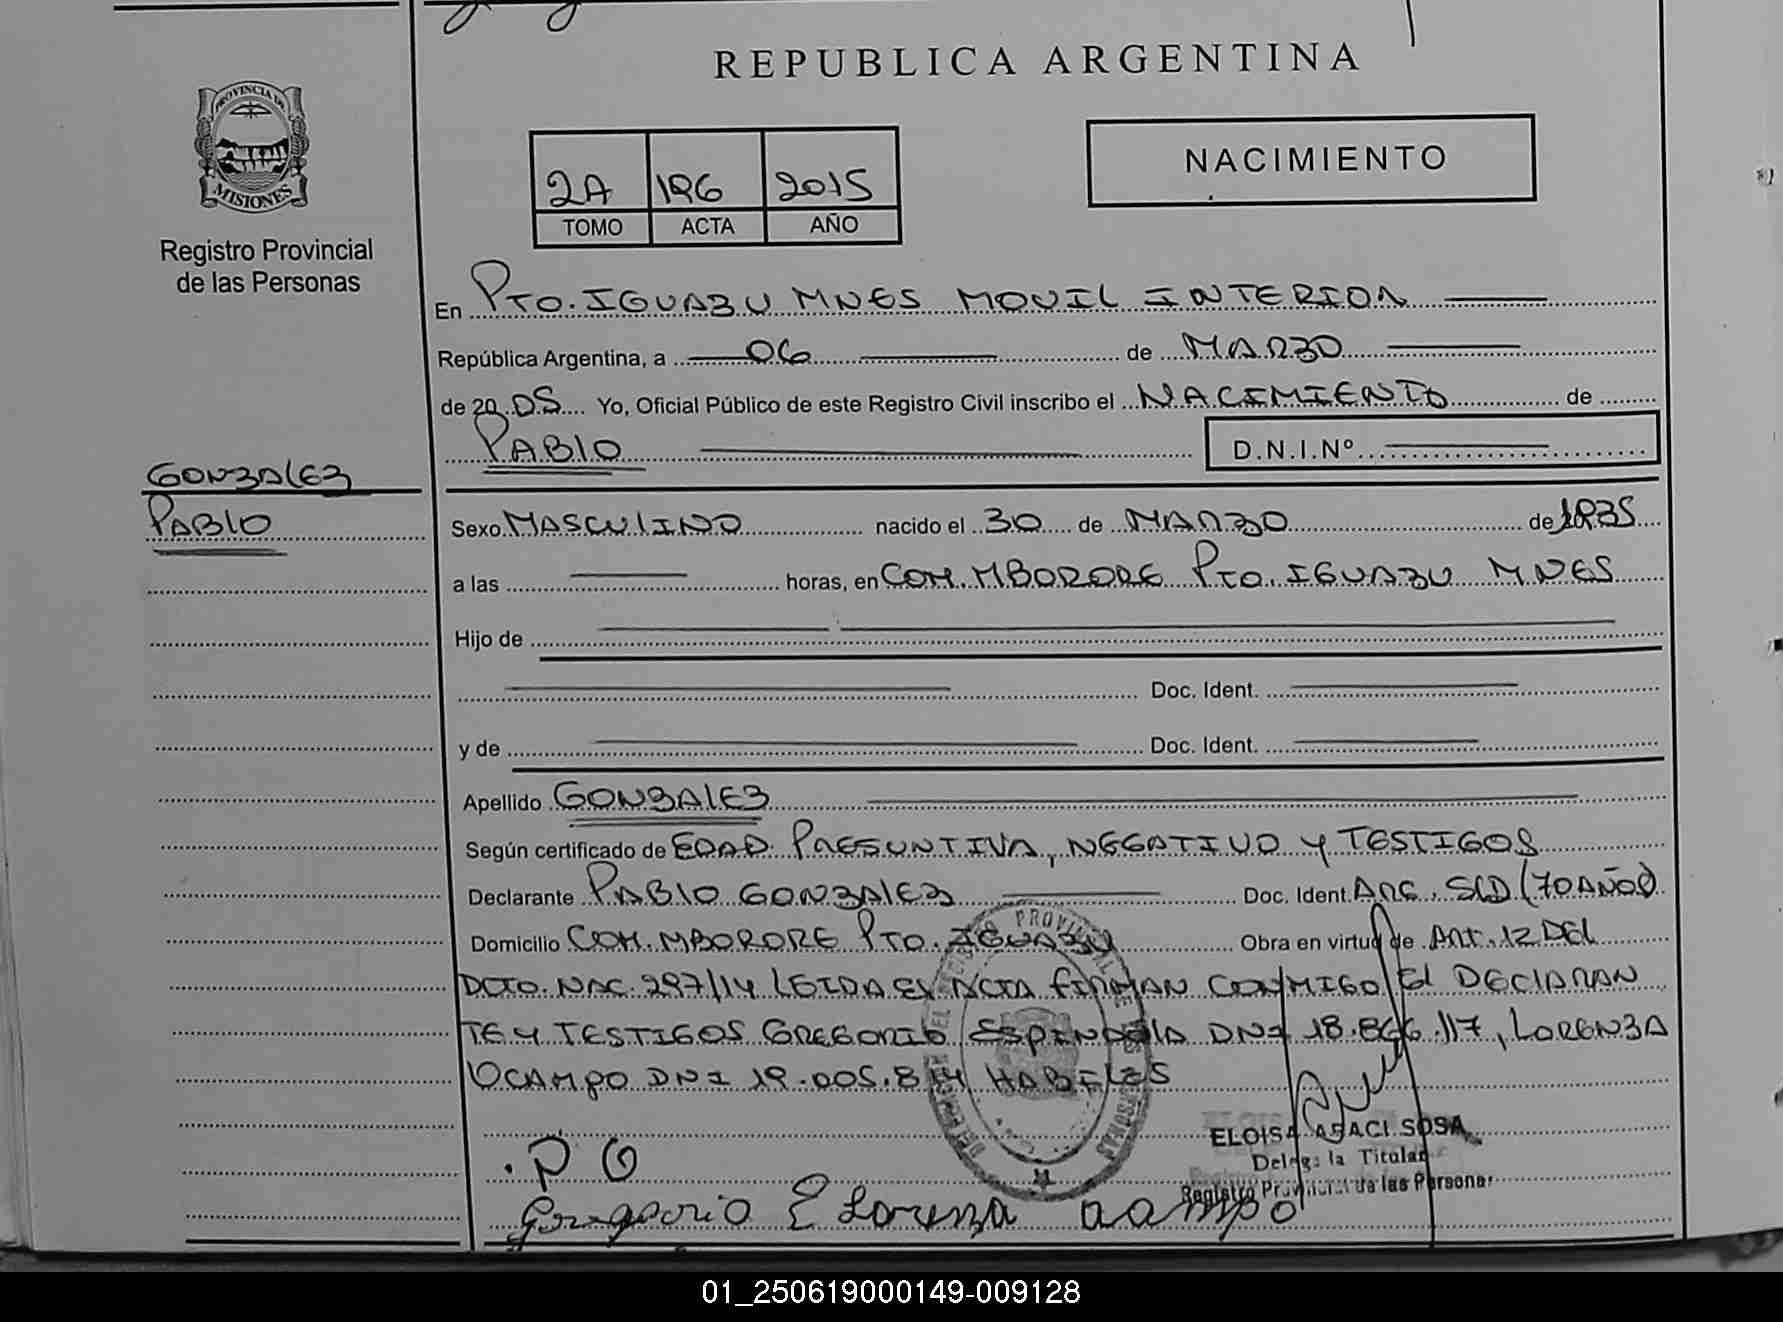 REPUBLICA ARGENTINA
PROVINCIA DE
MISIONES
Registro Provincial
de las Personas
2A 196 2015
TOMO ACTA AÑO
NACIMIENTO
En PTO. IGUAZU MNES MOVIL INTERIOR
República Argentina, a 06 de MARZO
de 20 DS Yo, Oficial Público de este Registro Civil inscribo el NACIMIENTO de
PABLO D.N.I.Nº
GONZALEZ
PABLO
Sexo MASCULINO nacido el 30 de MARZO de 1935
a las horas, en COM. MBORORE PTO. IGUAZU MNES
Hijo de
Doc. Ident.
y de Doc. Ident.
Apellido GONZALEZ
Según certificado de EDAD PRESUNTIVA, NEGATIVO Y TESTIGOS
Declarante PABLO GONZALEZ Doc. Ident. ARG. S/D (70 AÑOS)
Domicilio COM. MBORORE PTO. IGUAZU Obra en virtud de ART. 12 DEL
DCTO. NAC. 297/14 LEIDA EL ACTA FIRMAN CONMIGO EL DECLARAN
TE Y TESTIGOS GREGORIO ESPINDOLA DNI 18.866.117, LORENZA
OCAMPO DNI 19.005.814 HABILES
P G
ELOISA ARACI SOSA
Delegada Titular
Registro Provincial de las Personas
Gregorio E Lorenza ocampo
01_250619000149-009128